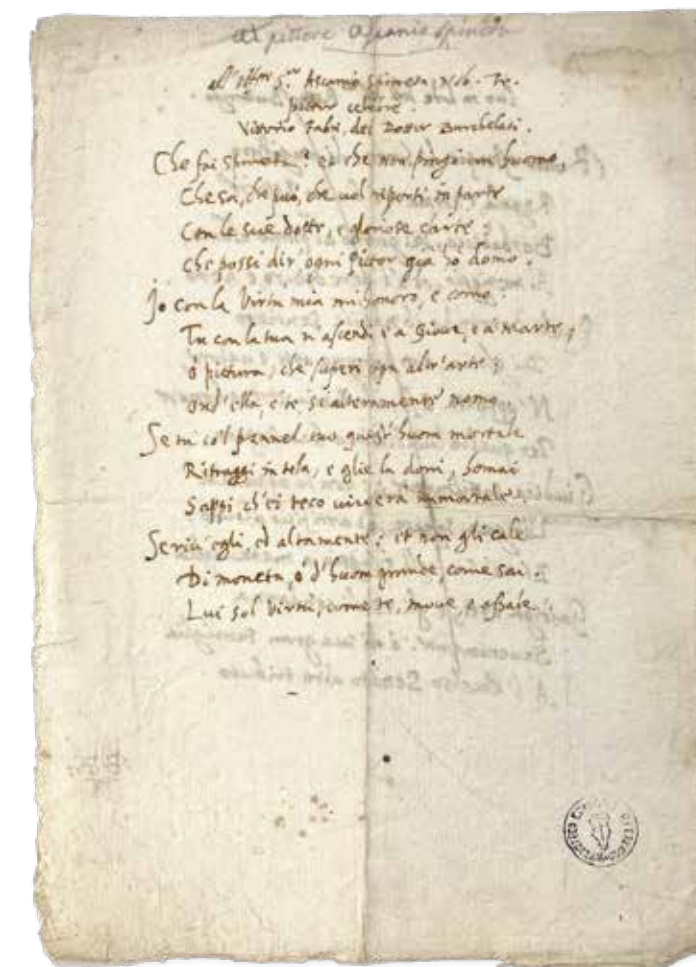 al pittore Ascanio Spineda
all' Ill.or S.or Ascanio Spineda, Nob. Tr.
pittor celebre.
Vittorio Fabri, del Dottor Burchelati.
Che fai Spineda? et che non pingi un huomo,
Che sa, che può, che vol riporti in parte
Con le sue dotte, e gloriose carte;
che possi dir ogni Pittor qua so domo.
Io con la Virtù mia mi honoro, e como.
Tu con la tua n'ascendi e a Giove, e a Marte;
ò pictura, che superi ogn altr'arte;
ond' ella, e te, si alteramente nomo.
Se tu co'l pennel tuo quest' huom mortale
Ritraggi in tela, e glie la doni, homai
Sappi, ch'ei teco viverà immortale.
Scriv' egli, ed altamente; et non gli cale
Di moneta, ò d'huom grande, come sai.
Lui sol Virtù, come te, move, e assale.